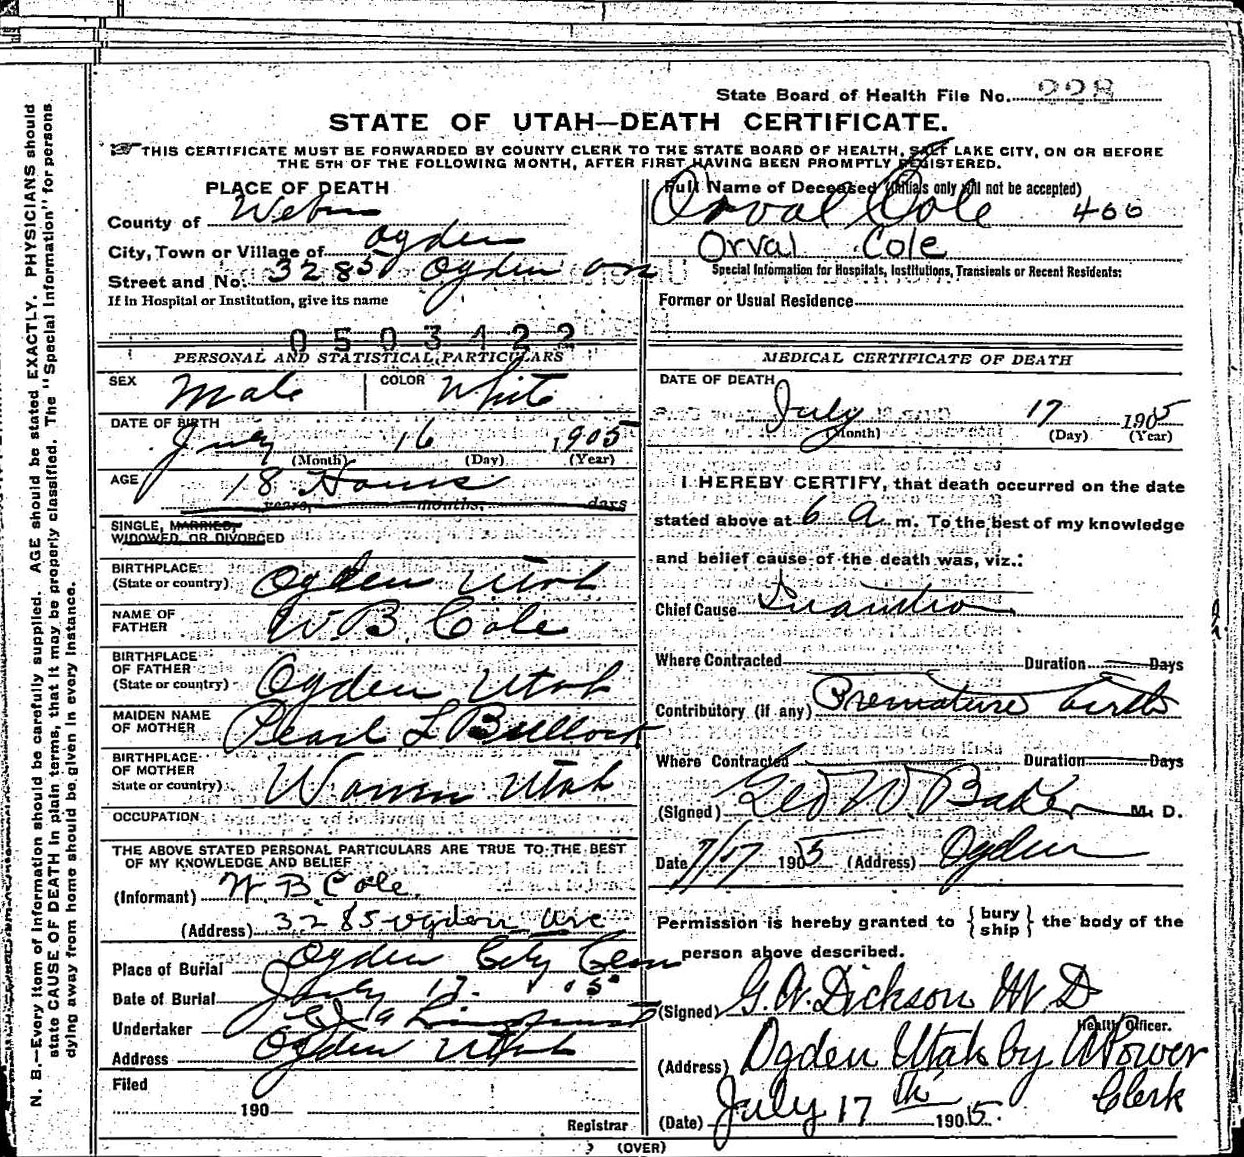 State Board of Health File No. 228
STATE OF UTAH—DEATH CERTIFICATE.
THIS CERTIFICATE MUST BE FORWARDED BY COUNTY CLERK TO THE STATE BOARD OF HEALTH, SALT LAKE CITY, ON OR BEFORE
THE 5TH OF THE FOLLOWING MONTH, AFTER FIRST HAVING BEEN PROMPTLY REGISTERED.
PLACE OF DEATH
County of Weber
City, Town or Village of Ogden
Street and No. 3285 Ogden ave
If in Hospital or Institution, give its name
0503422
Full Name of Deceased (Initials only will not be accepted)
Orval Cole 466
Orval Cole
Special Information for Hospitals, Institutions, Transients or Recent Residents:
Former or Usual Residence
PERSONAL AND STATISTICAL PARTICULARS
SEX Male COLOR White
DATE OF BIRTH July 16 1905
(Month) (Day) (Year)
AGE 18 Hours
years, months, days
SINGLE, MARRIED,
WIDOWED, OR DIVORCED
BIRTHPLACE
(State or country) Ogden Utah
NAME OF
FATHER W. B. Cole
BIRTHPLACE
OF FATHER
(State or country) Ogden Utah
MAIDEN NAME
OF MOTHER Pearl L Bullock
BIRTHPLACE
OF MOTHER
State or country) Warren Utah
OCCUPATION
THE ABOVE STATED PERSONAL PARTICULARS ARE TRUE TO THE BEST
OF MY KNOWLEDGE AND BELIEF
(Informant) W. B Cole.
(Address) 3285 Ogden Ave
Place of Burial Ogden City Cem
Date of Burial July 17 05
Undertaker
Address Ogden Utah
Filed
190
Registrar
MEDICAL CERTIFICATE OF DEATH
DATE OF DEATH
July 17 1905
(Month) (Day) (Year)
I HEREBY CERTIFY, that death occurred on the date
stated above at 6 a m. To the best of my knowledge
and belief cause of the death was, viz.:
Chief Cause Inanition
Where Contracted Duration Days
Contributory (if any) Premature birth
Where Contracted Duration Days
(Signed) Geo W. Baker M. D.
Date 7/17 1905 (Address) Ogden
Permission is hereby granted to { bury
ship } the body of the
person above described.
(Signed) G. W. Dickson M D
Health Officer.
(Address) Ogden Utah by A Power
Clerk
(Date) July 17th 1905.
(OVER)
N. B.—Every item of information should be carefully supplied. AGE should be stated EXACTLY. PHYSICIANS should
state CAUSE OF DEATH in plain terms, that it may be properly classified. The "Special Information" for persons
dying away from home should be given in every instance.